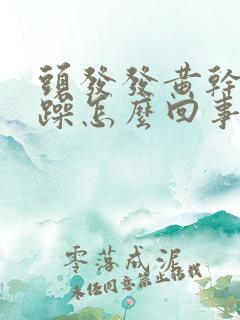 頭發發黄幹
躁怎麼回事
零落成泥
未经同意禁止转载